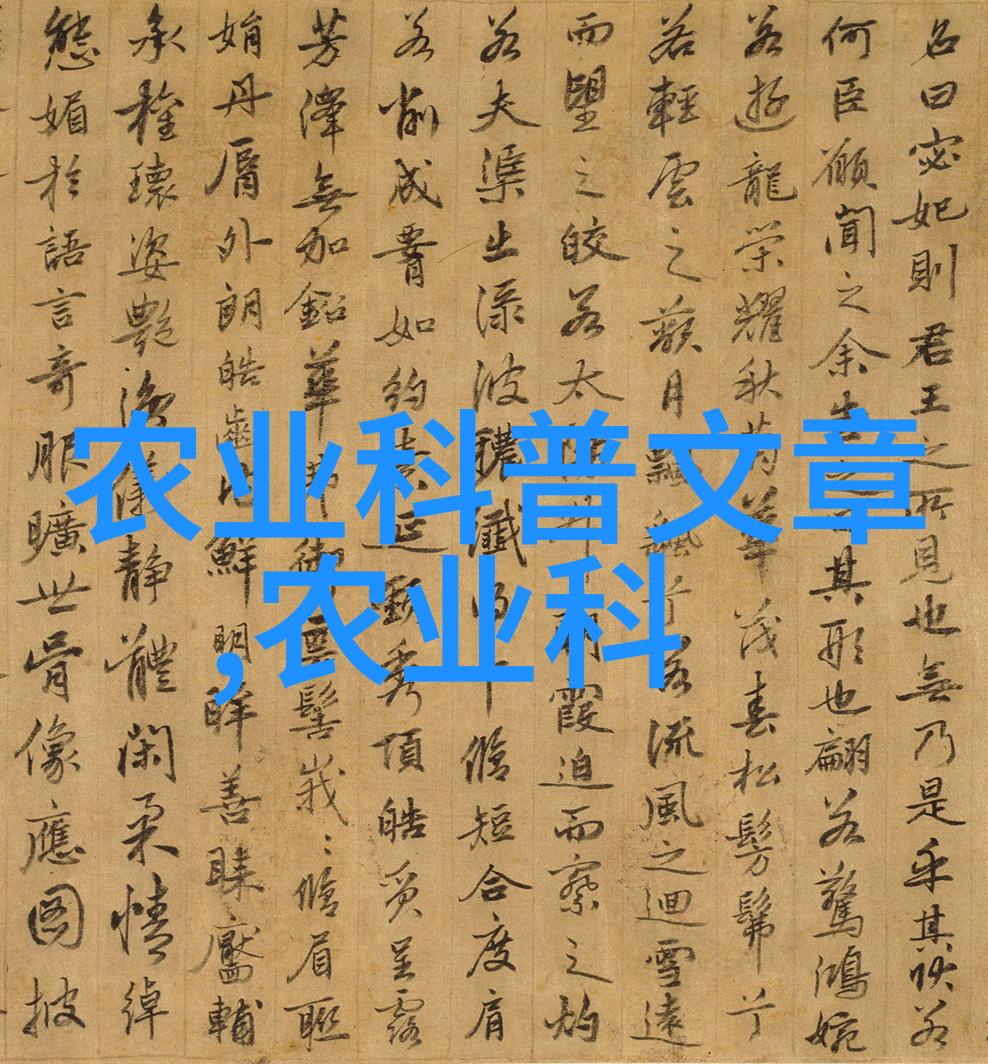 农业科普文章
,农业科
名曰宓妃則君王之所見也無乃是乎其狀若
何臣願聞之余其形也翩若驚鴻婉
若遊龍榮耀秋菊華茂春松髣髴兮
若輕雲之蔽月飄颻兮若流風之迴雪遠
而望之皎若太霞迫而察之灼
若夫渠出淥波穠纖得脩短合度肩
若削成腰如約素延頸秀項皓質呈露
芳澤無加鉛華弗御雲髻峩〻脩眉聯
娟丹脣外朗皓齒內鮮明眸善睞靨輔
承權瓌姿艷逸儀靜體閑柔情綽
態媚於語言奇服曠世骨像應圖披